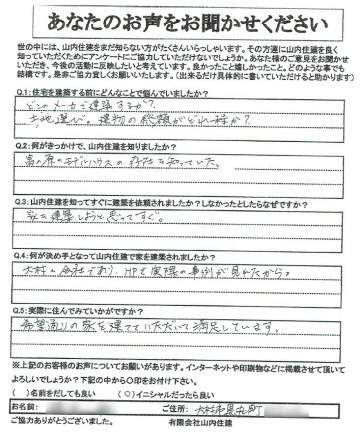 あなたのお声をお聞かせください
世の中には、山内住建をまだ知らない方がたくさんいらっしゃいます。その方達に山内住建を良く
知っていただくためにアンケートにご協力していただけないでしょうか。あなた様のご意見をお聞かせ
いただき、今後の活動に反映したいと考えています。良かったこと嬉しかったこと。どのような事でも
結構です。是非ご協力宜しくお願いいたします。(出来るだけ具体的に書いていただけると助かります)
Q.1:住宅を建築する前にどんなことで悩んでいましたか?
どこのメーカで建築するか?
土地選び。建物の総額がどれ程か?
Q.2:何がきっかけで、山内住建を知りましたか?
富の原のモデルハウスの存在を知っていた。
Q.3:山内住建を知ってすぐに建築を依頼されましたか?しなかったとしたらなぜですか?
家を建築しようと思ってすぐ。
Q.4:何が決め手となって山内住建で家を建築されましたか?
大村の会社であり、HPで実際の事例が見れたから。
Q.5:実際に住んでみていかがですか?
希望通りの家を建てていただいて満足しています。
※上記のお客様のお声についてお願いがあります。インターネットや印刷物などに掲載させて頂いて
よろしいでしょうか?下記の中から○印をお付け下さい。
( )名前をだしても良い (○)イニシャルだったら良い
お名前: ご住所: 大村市
ご協力ありがとうございました。 有限会社山内住建